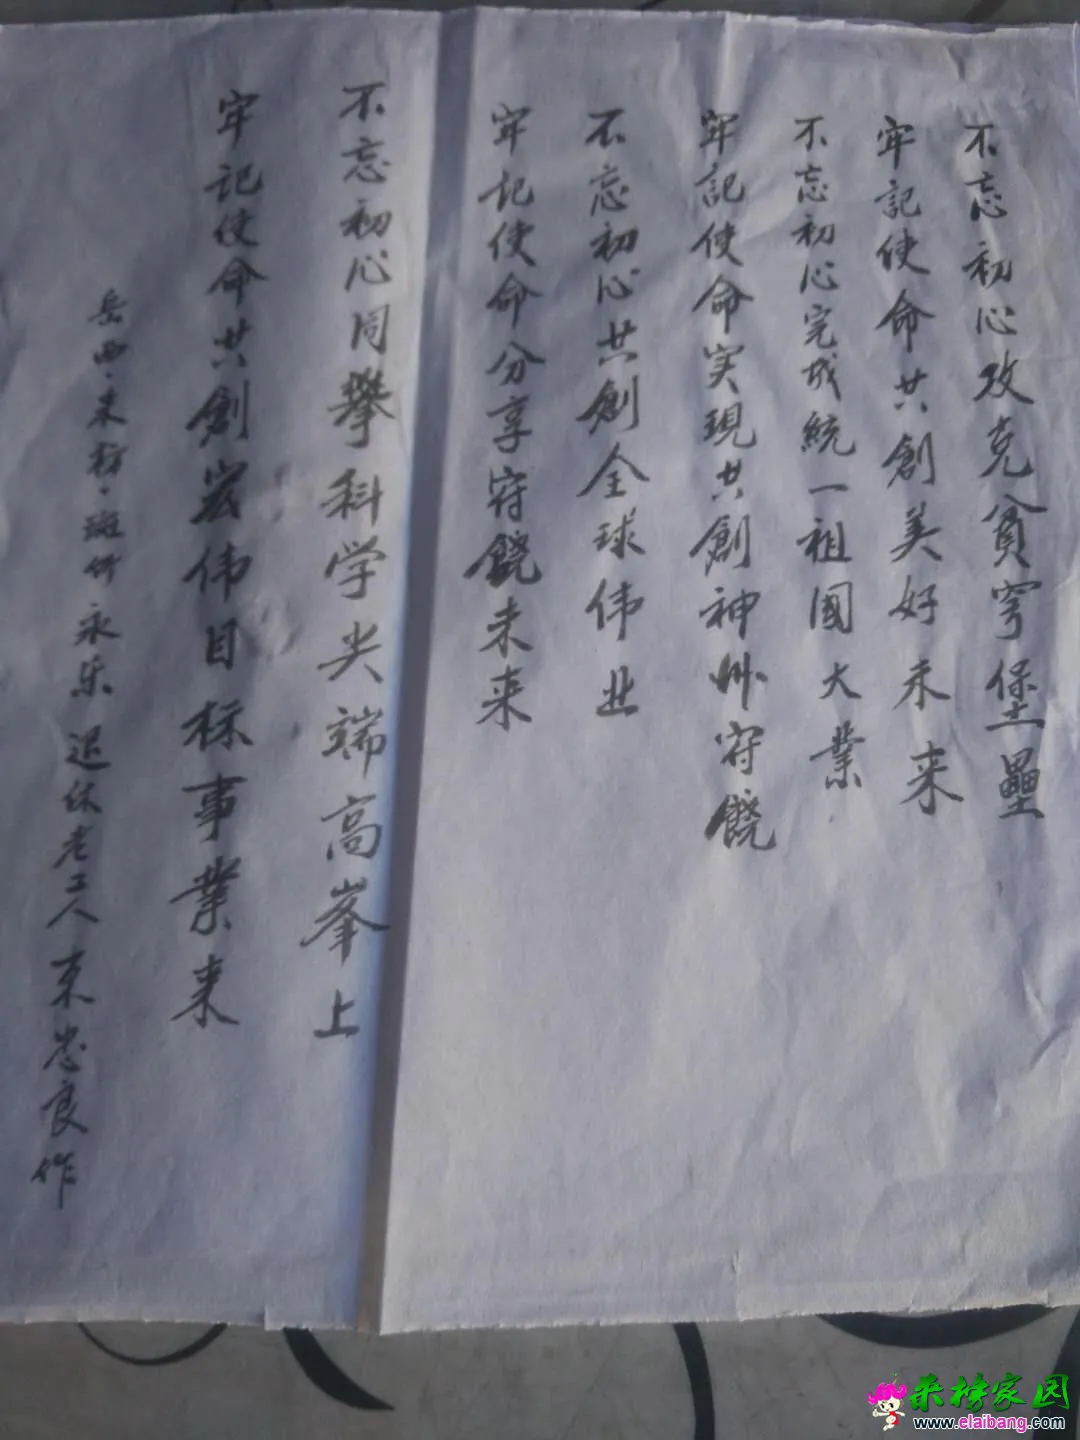 不忘初心攻克貧穹堡壘
牢記使命共創美好未来
不忘初心完成統一祖國大業
牢記使命实現共創神州富饒
不忘初心共創全球伟业
牢记使命分享富饒未来
不忘初心同攀科学尖端高峯上
牢记使命共創宏伟目标事業来
岳西·来榜·斑竹永乐退休老工人 忠良作
来榜家园
www.elaibang.com